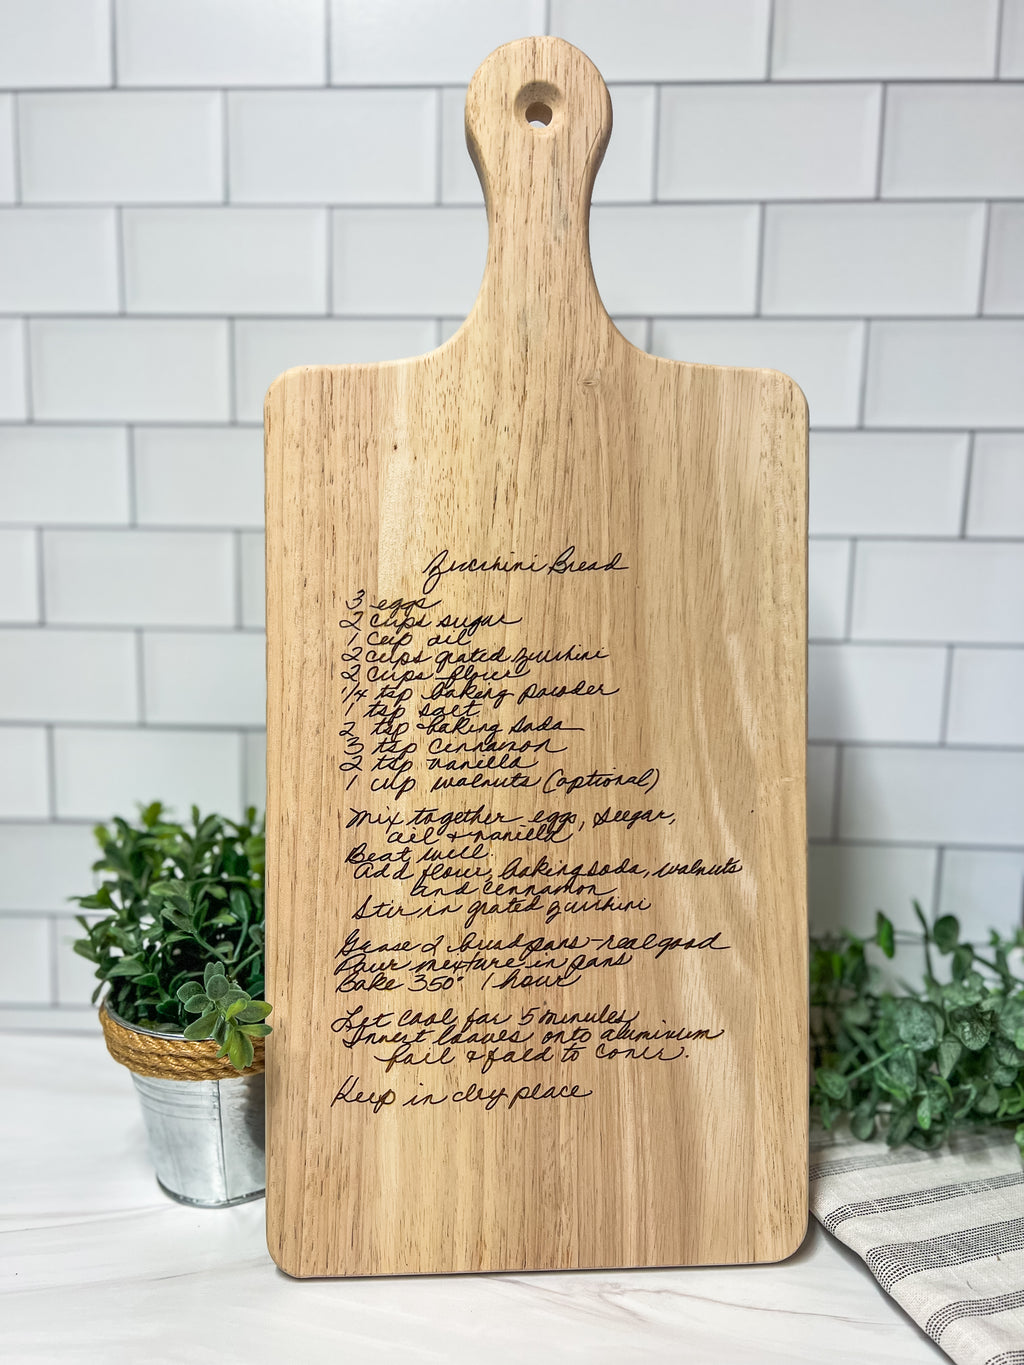 Zucchini Bread
3 eggs
2 cups sugar
1 cup oil
2 cups grated zucchini
2 cups flour
1/4 tsp baking powder
1 tsp salt
2 tsp baking soda
3 tsp cinnamon
2 tsp vanilla
1 cup walnuts (optional)
Mix together eggs, sugar,
oil + vanilla
Beat well.
add flour, baking soda, walnuts
and cinnamon
Stir in grated zucchini
Grease 2 bread pans - real good
Pour mixture in pans
Bake 350° 1 hour
Let cool for 5 minutes
Invert loaves onto aluminum
foil + fold to cover.
Keep in dry place